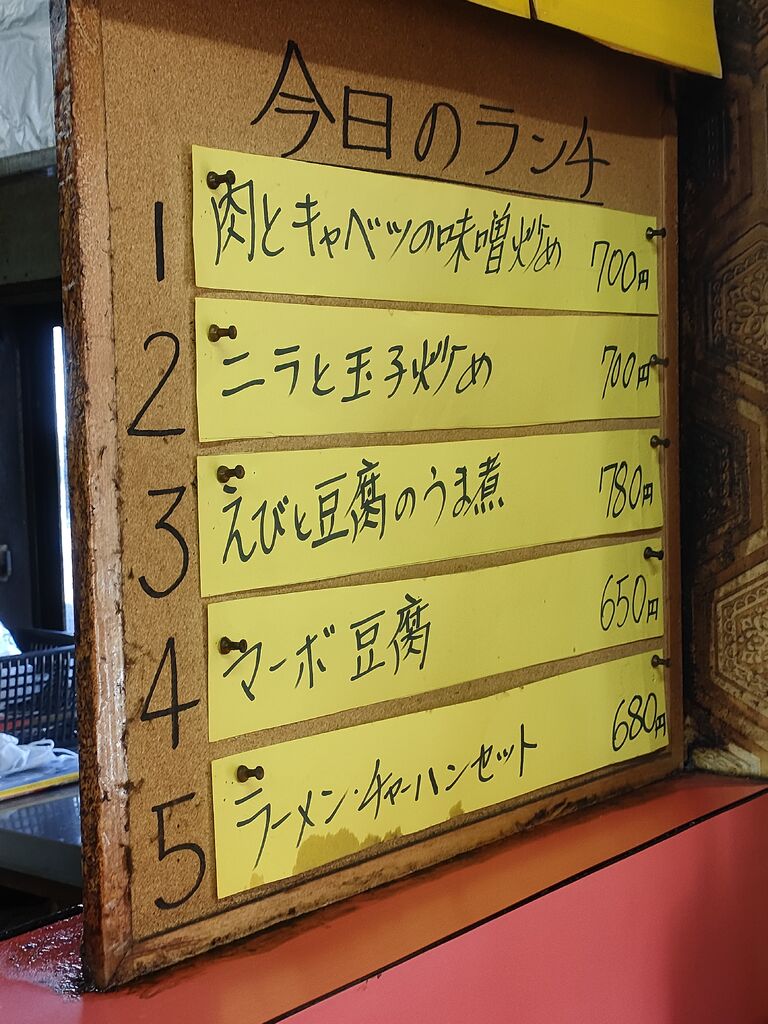 今日のランチ
1 肉とキャベツの味噌炒め 700円
2 ニラと玉子炒め 700円
3 えびと豆腐のうま煮 780円
4 マーボ豆腐 650円
5 ラーメン・チャーハンセット 680円